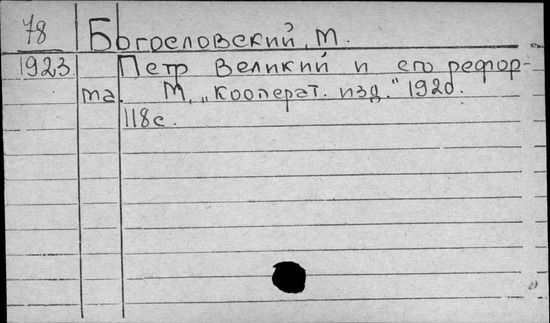 78 Богословский, М.
1923. Петр Великий и его рефор-
ma. М, „Кооперат. изд." 1920.
118с.